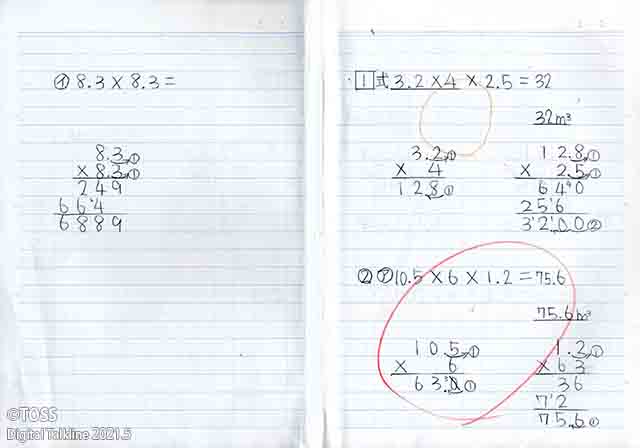 ㋑ 8.3 × 8.3 =
8.3 ①
× 8.3 ①
249
664
6889
1 式 3.2 × 4 × 2.5 = 32
32m³
3.2 ①
× 4
12.8 ①
12.8 ①
× 2.5 ①
640
256
32.00 ②
② ㋐ 10.5 × 6 × 1.2 = 75.6
75.6m³
10.5 ①
× 6
63.0 ①
1.2 ①
× 63
36
72
75.6 ①
©TOSS
Digital Talkline 2021.5